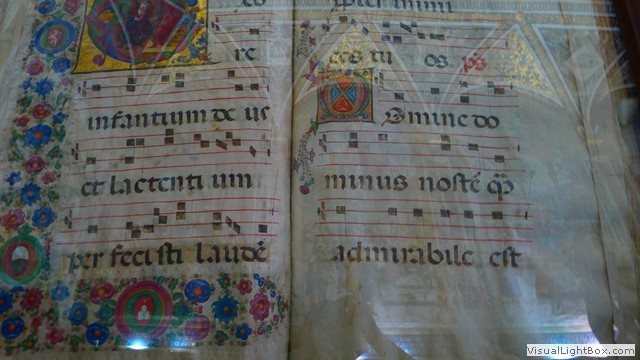 re
infantium de us
et lactenti um
per feci sti laudē
inimi
ces tu os ps
Domine do
minus nostē
admirabile est
www.VisualLightBox.com